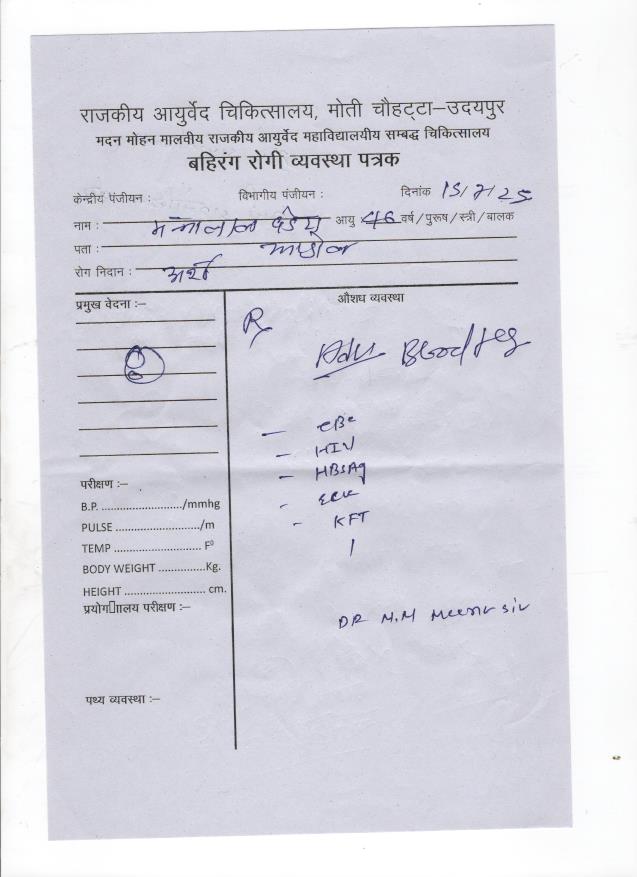 राजकीय आयुर्वेद चिकित्सालय, मोती चौहट्टा–उदयपुर
मदन मोहन मालवीय राजकीय आयुर्वेद महाविद्यालयीय सम्बद्ध चिकित्सालय
बहिरंग रोगी व्यवस्था पत्रक
केन्द्रीय पंजीयन : विभागीय पंजीयन : दिनांक 15/7/25
नाम : आयु 46 वर्ष/पुरूष/स्त्री/बालक
पता :
रोग निदान : अर्श
प्रमुख वेदना :–
औशध व्यवस्था
Rx
Adv Blood
– CBC
– HIV
– HBSAg
–
– KFT
DR M.M
परीक्षण :–
B.P. ........................../mmhg
PULSE ........................../m
TEMP ........................... F⁰
BODY WEIGHT ...............Kg.
HEIGHT .......................... cm.
प्रयोग▯ाालय परीक्षण :–
पथ्य व्यवस्था :–